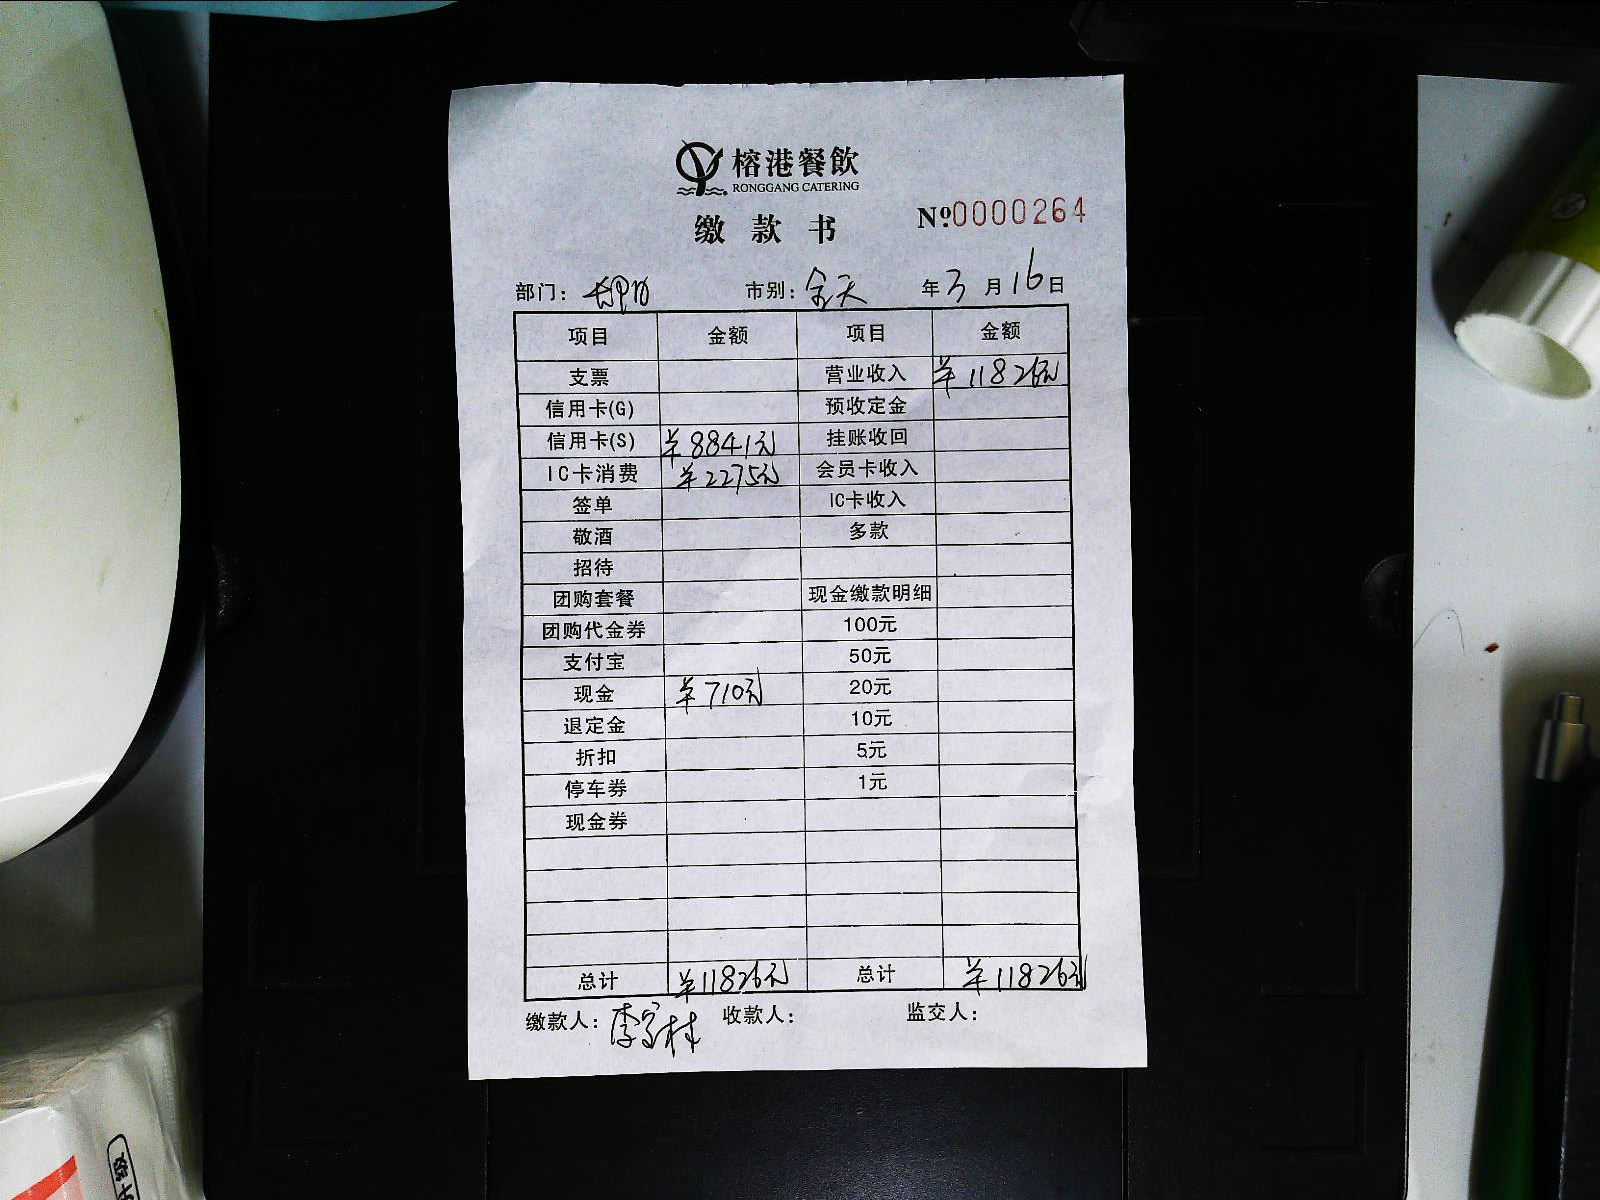 榕港餐飲
RONGGANG CATERING
缴款书 №0000264
部门： 市别：全天 年3月16日
项目 金额 项目 金额
支票 营业收入 ¥11826元
信用卡(G) 预收定金
信用卡(S) ¥8841元 挂账收回
IC卡消费 ¥2275元 会员卡收入
签单 IC卡收入
敬酒 多款
招待
团购套餐 现金缴款明细
团购代金券 100元
支付宝 50元
现金 ¥710元 20元
退定金 10元
折扣 5元
停车券 1元
现金券
总计 ¥11826元 总计 ¥11826元
缴款人：李 村 收款人： 监交人：
升级